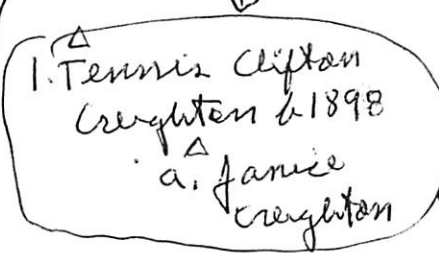 1. Tennis Clifton
Creighton b 1898
a. Janice
Creighton